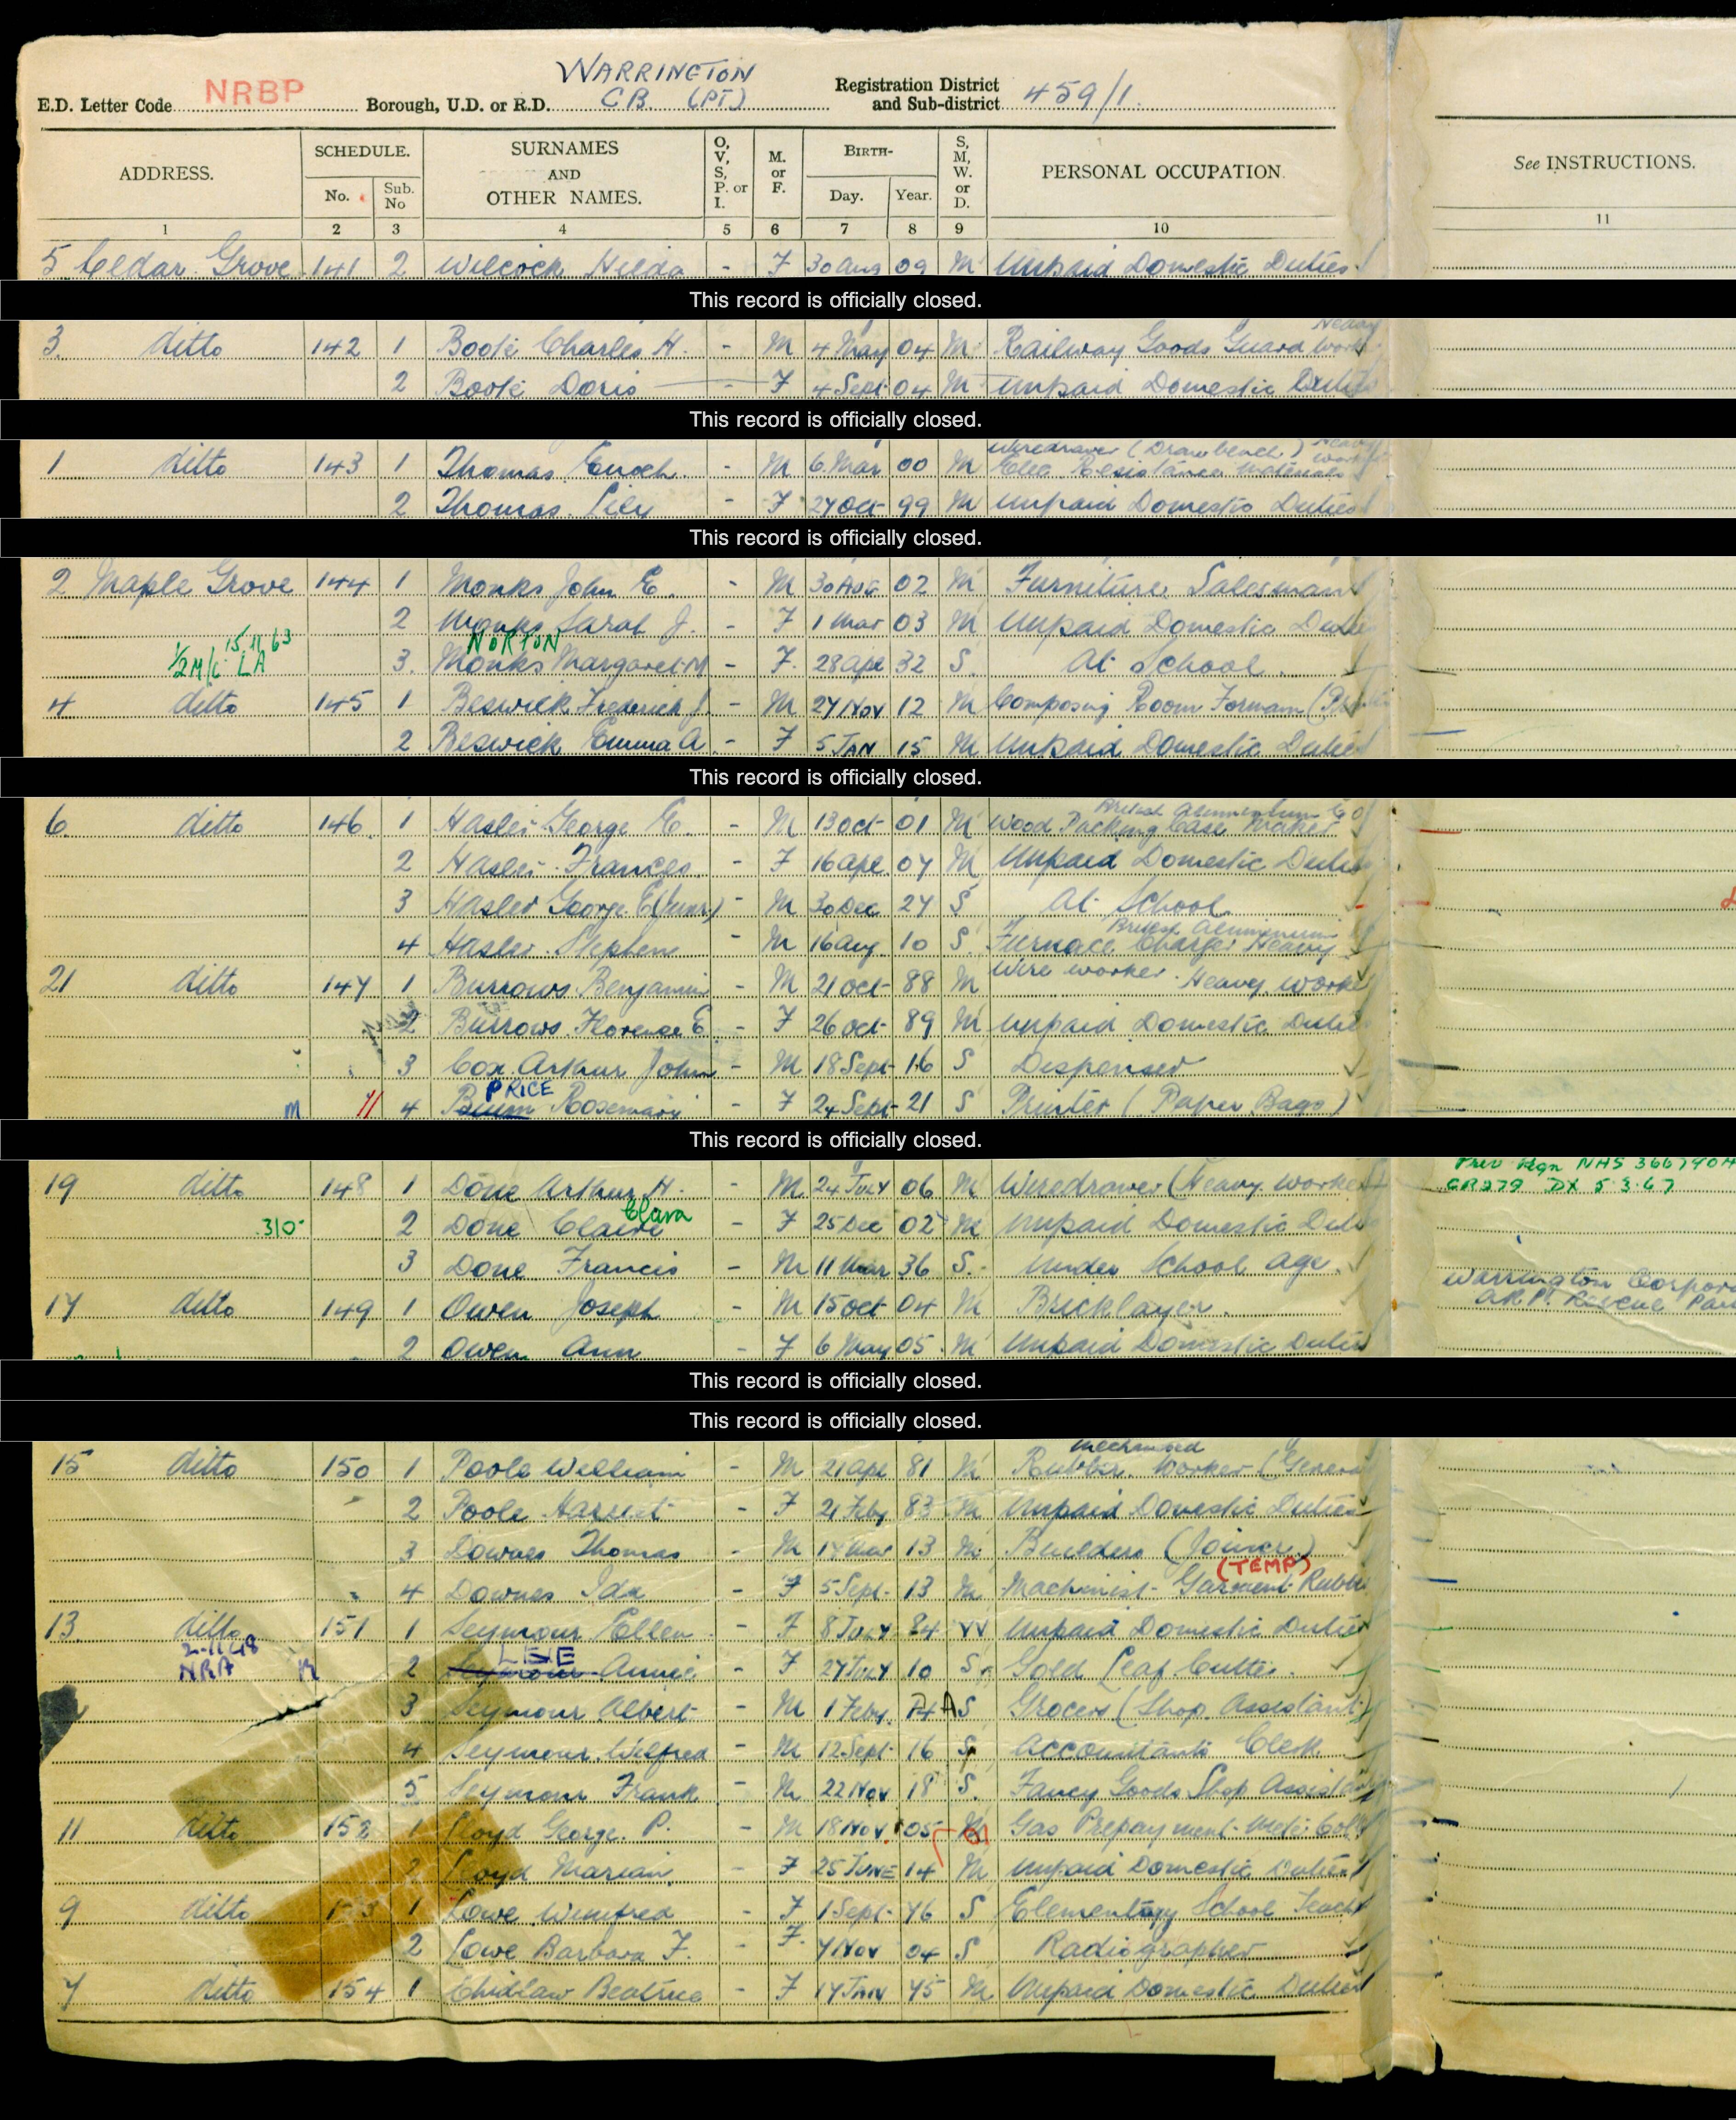 WARRINGTON
E.D. Letter Code NRBP Borough, U.D. or R.D. C.B. (PT) Registration District and Sub-district 459/1
ADDRESS. SCHEDULE. No. Sub. No SURNAMES AND OTHER NAMES. O, V, S, P. or I. M. or F. BIRTH- Day. Year. S, M, W. or D. PERSONAL OCCUPATION. See INSTRUCTIONS.
1 2 3 4 5 6 7 8 9 10 11
5 Cedar Grove 141 2 Wilcock Hilda - F 30 Aug 09 M Unpaid Domestic Duties
This record is officially closed.
Heavy
3 ditto 142 1 Boote Charles H. - M 4 May 04 M Railway Goods Guard Work
2 Boote Doris - F 4 Sept 04 M Unpaid Domestic Duties
This record is officially closed.
Wiredrawer (Draw bench) Heavy
1 ditto 143 1 Thomas Enoch - M 6 Mar 00 M Elec. Resistance Materials
2 Thomas Lily - F 27 Oct 99 M Unpaid Domestic Duties
This record is officially closed.
2 Maple Grove 144 1 Monks John E. - M 30 AUG 02 M Furniture Salesman
2 Monks Sarah J. - F 1 Mar 03 M Unpaid Domestic Duties
15.11.63 NORTON
LA 3 Monks Margaret M - F 28 Apl 32 S At School
4 ditto 145 1 Beswick Frederick J. - M 27 NOV 12 M Composing Room Forman
2 Beswick Emma A. - F 5 JAN 15 M Unpaid Domestic Duties
This record is officially closed.
British Aluminium Co
6 ditto 146 1 Hasler George E. - M 13 Oct 01 M Wood Packing Case Maker
2 Hasler Frances - F 16 Apl 07 M Unpaid Domestic Duties
3 Hasler George E (Junr) - M 30 Dec 27 S At School
British Aluminium
4 Hasler Stephen - M 16 Aug 10 S Furnace Charger Heavy
21 ditto 147 1 Burrows Benjamin - M 21 Oct 88 M Wire worker Heavy Worker
2 Burrows Florence E - F 26 Oct 89 M Unpaid Domestic Duties
3 Cox Arthur John - M 18 Sept 16 S Dispenser
PRICE
M 11 4 Rosemary - F 24 Sept 21 S Printer (Paper Bags)
This record is officially closed.
19 ditto 148 1 Done Arthur H. - M 24 JULY 06 M Wiredrawer (Heavy Worker) CR279 DX 5.3.67
Clara
310 2 Done Claire - F 25 Dec 02 M Unpaid Domestic Duties
3 Done Francis - M 11 Mar 36 S. Under School age.
Warrington
17 ditto 149 1 Owen Joseph - M 15 Oct 04 M Bricklayer. A.R.P. Rescue
2 Owen Ann - F 6 May 05 M Unpaid Domestic Duties
This record is officially closed.
This record is officially closed.
mechanised
15 ditto 150 1 Poole William - M 21 Apl 81 M Rubber Worker (General
2 Poole Harriet - F 21 Feby 83 M Unpaid Domestic Duties
3 Downes Thomas - M 17 Mar 13 M Builders (Joiner)
(TEMP)
4 Downes Ida - F 5 Sept 13 M Machinist Garment Rubber
13 ditto 151 1 Seymour Ellen - F 8 JULY 84 W Unpaid Domestic Duties
2-11-48 LEE
NRA 2 Seymour Annie - F 27 JULY 10 S Gold Leaf Cutter.
3 Seymour Albert - M 1 Feby 14 S Grocers (Shop Assistant)
4 Seymour Wilfred - M 12 Sept 16 S Accountants Clerk
5 Seymour Frank - M 22 NOV 18 S. Fancy Goods Shop Assistant
11 ditto 152 1 Lloyd George P. - M 18 NOV 05 M Gas Prepayment Meter Coll
2 Lloyd Marian - F 25 JUNE 14 M Unpaid Domestic Duties
9 ditto 153 1 Lowe Winifred - F 1 Sept 76 S Elementary School Teach
2 Lowe Barbara F. - F. 7 Nov 04 S Radiographer
7 ditto 154 1 Chidlaw Beatrice - F 17 JAN 75 M Unpaid Domestic Duties